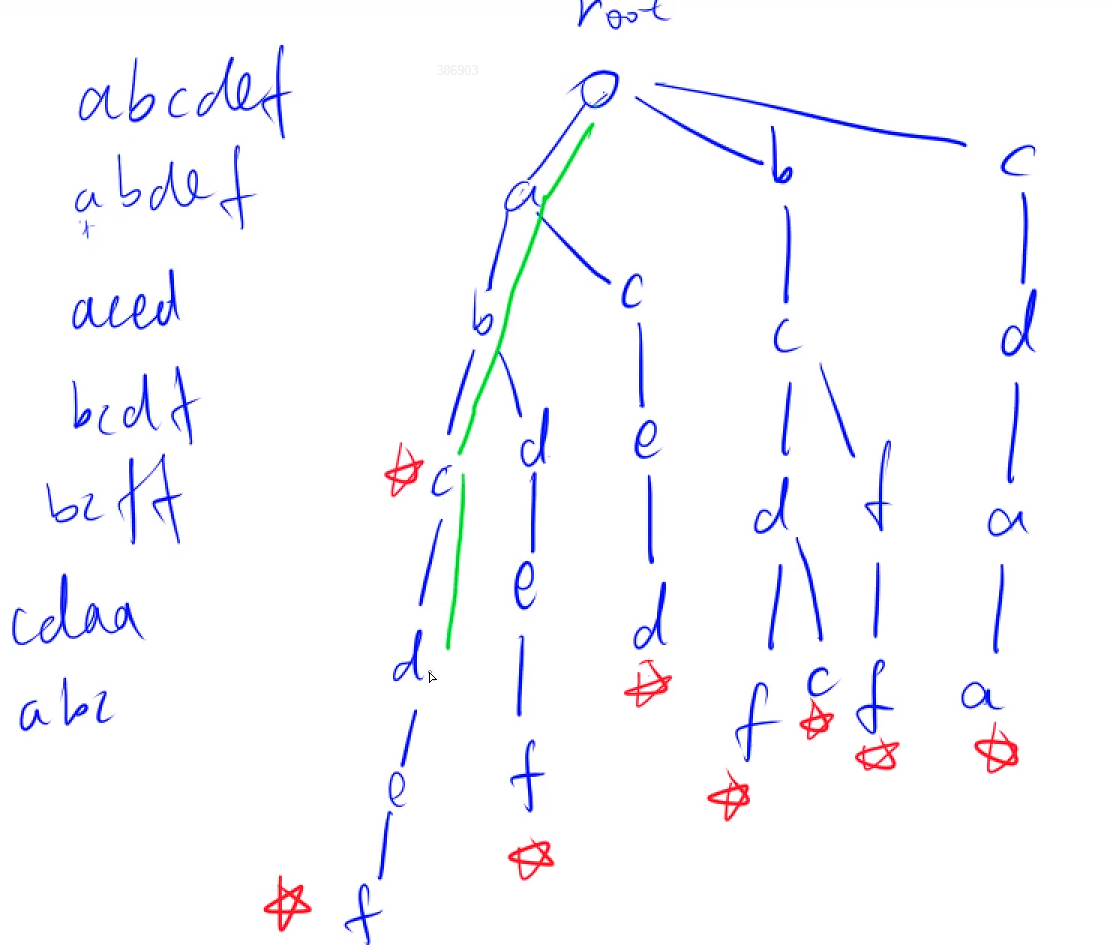 root
386903
abcdef
abdef
aced
bcdf
bcff
cdaa
abc
a b c
b c c d
c d e d f a
d e d f c f a
e f
f